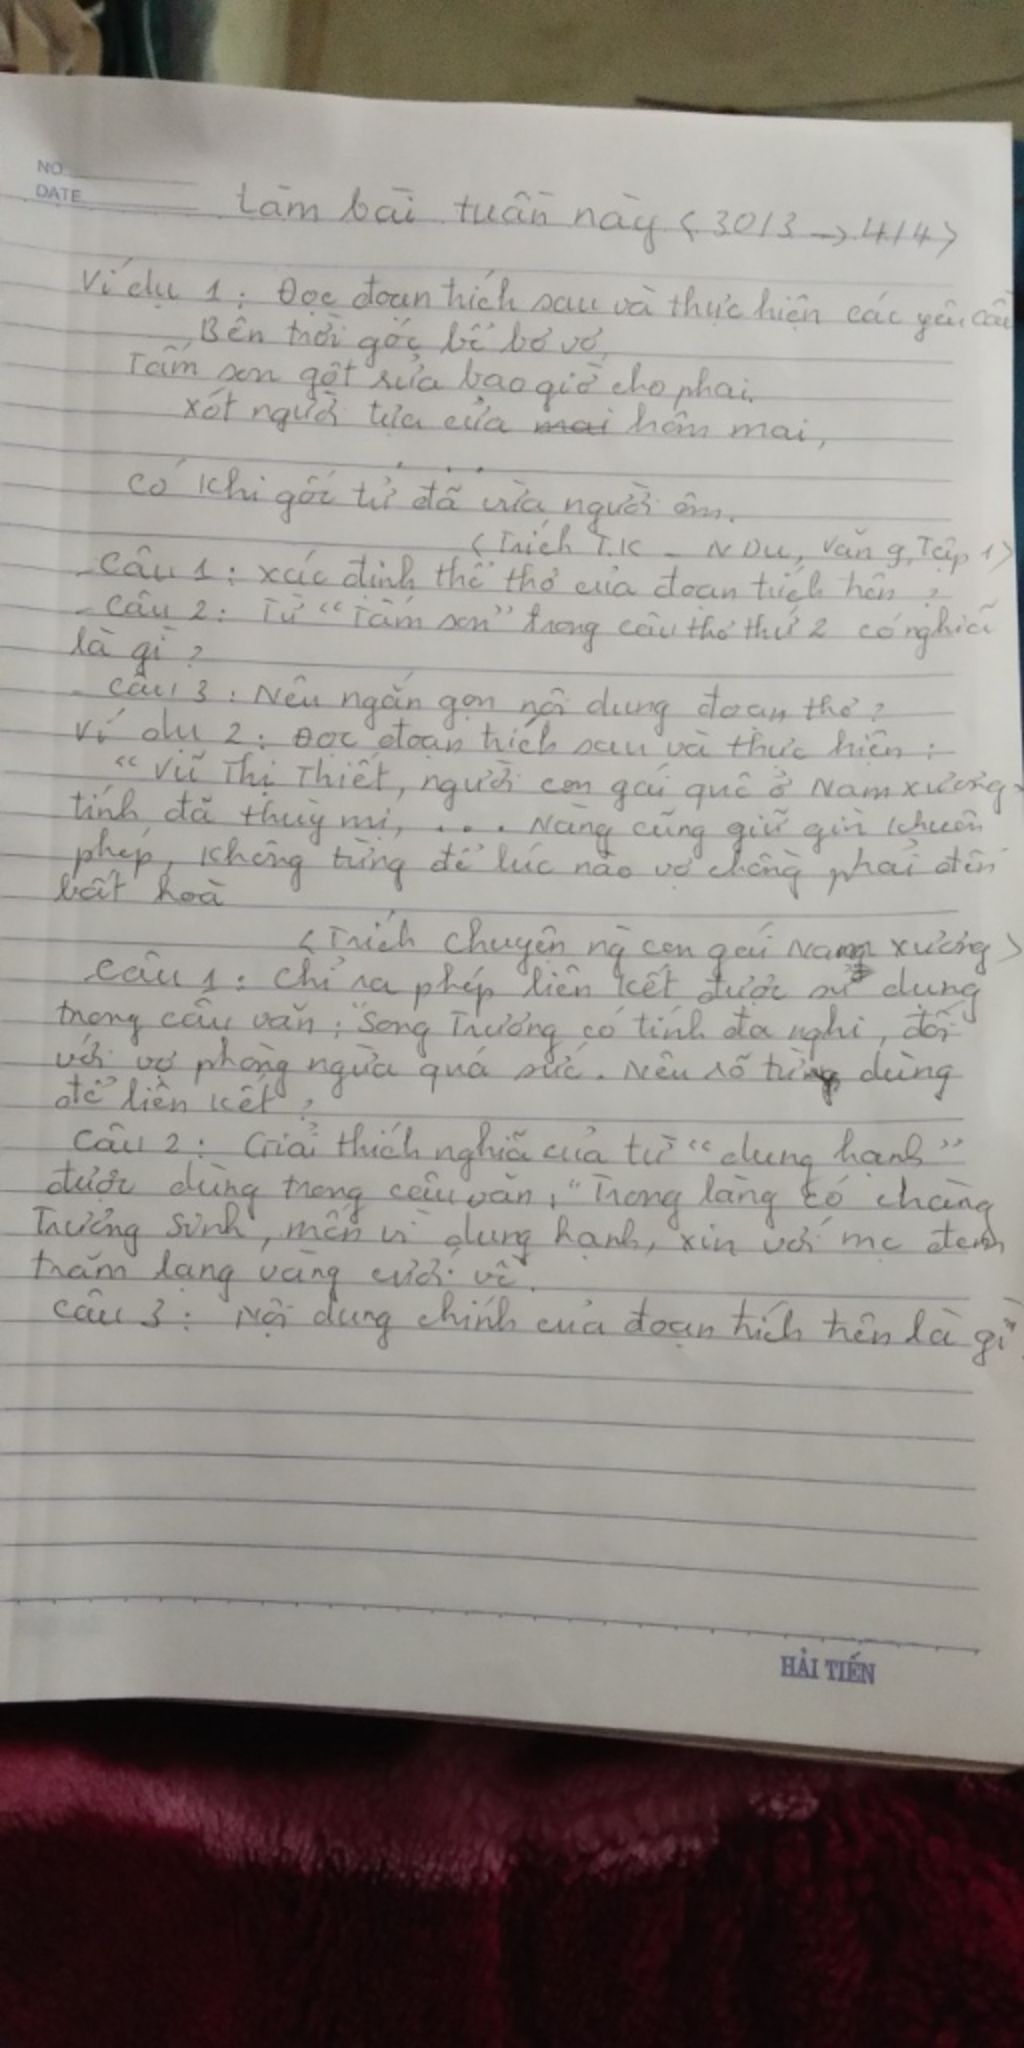 NO
DATE
Làm bài tuần này (30/3 → 4/4)
Ví dụ 1: Đọc đoạn trích sau và thực hiện các yêu cầu
Bên trời góc bể bơ vơ,
Tấm son gột rửa bao giờ cho phai.
Xót người tựa cửa mai hôm mai,
. . .
Có khi gốc tử đã vừa người ôm.
(Trích T.K - N Du, Văn 9, Tập 1)
- Câu 1: Xác định thể thơ của đoạn trích trên?
- Câu 2: Từ "Tấm son" trong câu thơ thứ 2 có nghĩa
là gì?
- Câu 3: Nêu ngắn gọn nội dung đoạn thơ?
Ví dụ 2: Đọc đoạn trích sau và thực hiện:
"Vũ Thị Thiết, người con gái quê ở Nam Xương,
tính đã thuỳ mị, . . . Nàng cũng giữ gìn khuôn
phép, không từng để lúc nào vợ chồng phải đến
bất hoà
(Trích chuyện ng con gái Nam Xương)
Câu 1: Chỉ ra phép liên kết được sử dụng
trong câu văn: "Song Trương có tính đa nghi, đối
với vợ phòng ngừa quá sức. Nêu rõ từ ng dùng
để liên kết?
Câu 2: Giải thích nghĩa của từ "dung hạnh"
được dùng trong câu văn: "Trong làng có chàng
Trương Sinh, mến vì dung hạnh, xin với mẹ đem
trăm lạng vàng cưới về.
Câu 3: Nội dung chính của đoạn trích trên là gì
HẢI TIẾN